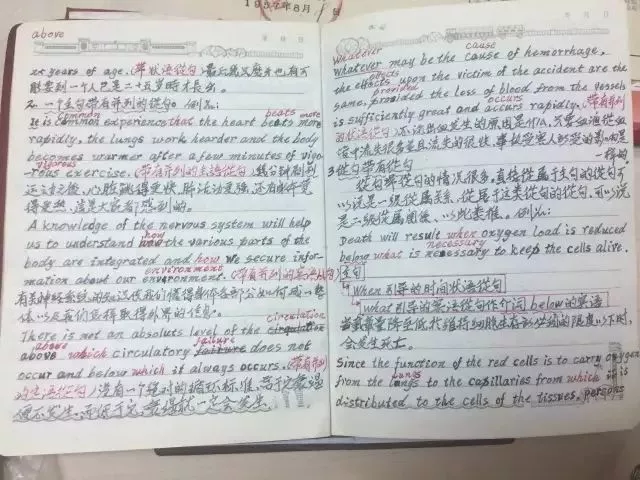 1987年8月 日
above
25 years of age. (带状语从句)
2. 一个主句带有并列的从句。例如:
common beats more
It is common experience that the heart beats more
rapidly, the lungs work hearder and the body
becomes warmer after a few minutes of vigo-
vigorous
rous exercise. (带有并列的主语从句) 几分钟剧烈
运动之后,心脏跳得更快,肺活动更强,还有身体变
得更热,这是大家都感到的。
A knowledge of the nervous system will help
how
us to understand how the various parts of the
body are integrated and how we secure infor-
environment
mation about our environment. (带有并列的宾语从句)
circulation
There is not an absolute level of the circulation
above failure
above which circulatory failure does not
occur and below which it always occurs. (带有并列
的定语从句) 没有一个绝对的循环标准,高于它衰竭
便不发生,而低于它,衰竭就一定会发生.
whatever cause
whatever may be the cause of hemorrhage,
effects
the effects upon the victim of the accident are the
provided
same, provided the loss of blood from the vessels
occurs
is sufficiently great and occurs rapidly. (带有并列
的状语从句) 不论出血发生的原因是什么,只要血液从血
管中流失很多并且流失的很快,事故受害人所受的影响是
一样的
3 从句带有从句
从句带从句的情况很多,直接从属于主句的从句可
以说是一级从属关系,从属于这类从句的从句,可以说
是二级从属关系,以此类推。例如:
Death will result when oxygen load is reduced
necessary
below what is necessary to keep the cells alive.
主句
when引导的时间状语从句
what引导的宾语从句作介词below的宾语
当载氧量降至低于维持细胞生存所必须的限度以下时,
会发生死亡。
Since the function of the red cells is to carry oxygen
Lungs
from the lungs to the capillaries from which it is
distributed to the cells of the tissues, persons